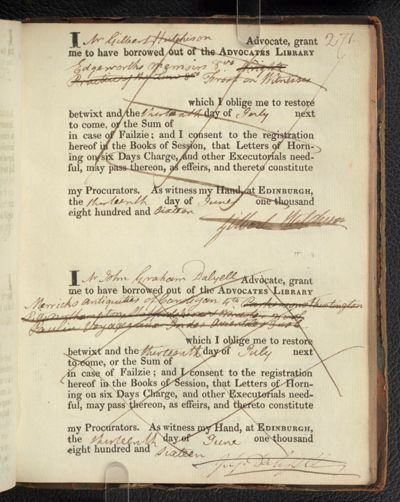 271.
I Mr Gilbert Hutchison Advocate, grant
me to have borrowed out of the ADVOCATES LIBRARY
Edgeworths Memoirs 2 vo
on Witnesses
which I oblige me to restore
betwixt and the thirteenth day of July next
to come, or the Sum of
in case of Failzie; and I consent to the registration
hereof in the Books of Session, that Letters of Horn-
ing on six Days Charge, and other Executorials need-
ful, may pass thereon, as effeirs, and thereto constitute
my Procurators. As witness my Hand, at EDINBURGH,
the thirteenth day of June one thousand
eight hundred and sixteen
Gilbert Hutchison
I Mr John Graham Dalyell Advocate, grant
me to have borrowed out of the ADVOCATES LIBRARY
Merricks Antiquities of Cardigan 4to Huntington
Voyage
which I oblige me to restore
betwixt and the thirteenth day of July next
to come, or the Sum of
in case of Failzie; and I consent to the registration
hereof in the Books of Session, that Letters of Horn-
ing on six Days Charge, and other Executorials need-
ful, may pass thereon, as effeirs, and thereto constitute
my Procurators. As witness my Hand, at EDINBURGH,
the thirteenth day of June one thousand
eight hundred and sixteen